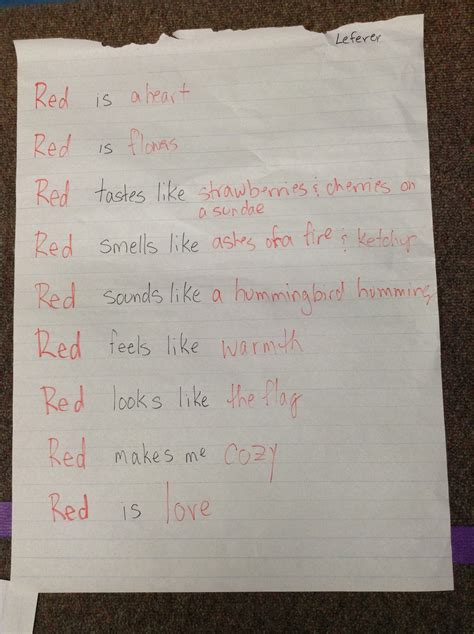 Leferer
Red is a heart
Red is
Red tastes like strawberries & cherries on
a sundae
Red smells like ashes of a fire & ketchup
Red sounds like a hummingbird humming
Red feels like warmth
Red looks like the flag
Red makes me cozy
Red is love